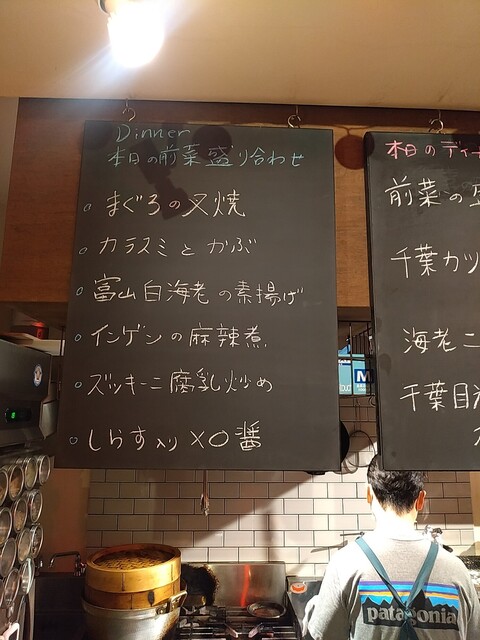 Dinner
本日の前菜盛り合わせ
。まぐろの叉焼
。カラスミとかぶ
。富山白海老の素揚げ
。インゲンの麻辣煮
。ズッキーニ腐乳炒め
。しらす入りXO醤
本日のディナ
前菜の盛
千葉カツ
海老ニ
千葉目光
M
patagonia